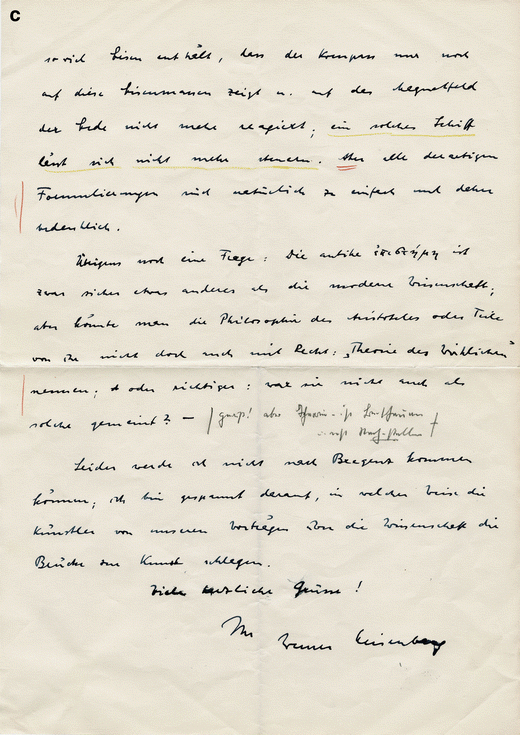 C
so viel Eisen enthält, dass der Kompass nur noch
auf diese Eisenmassen zeigt u. auf das Magnetfeld
der Erde nicht mehr reagiert; ein solches Schiff
lässt sich nicht mehr steuern. Aber alle derartigen
Formulierungen sind natürlich zu einfach und daher
bedenklich.
Übrigens noch eine Frage: Die antike ἐπιστήμη ist
zwar sicher etwas anderes als die moderne Wissenschaft;
aber könnte man die Philosophie des Aristoteles oder Teile
von ihr nicht doch auch mit Recht: „Theorie des Wirklichen"
nennen; oder richtiger: war sie nicht auch als
solche gemeint? —
gewiß! aber Theorie ist
nicht
Leider werde ich nicht nach Bregenz kommen
können; ich bin gespannt darauf, in welcher Weise die
Künstler von unseren Vorträgen über die Wissenschaft die
Brücke zur Kunst schlagen.
Viele herzliche Grüsse!
Ihr Werner Heisenberg